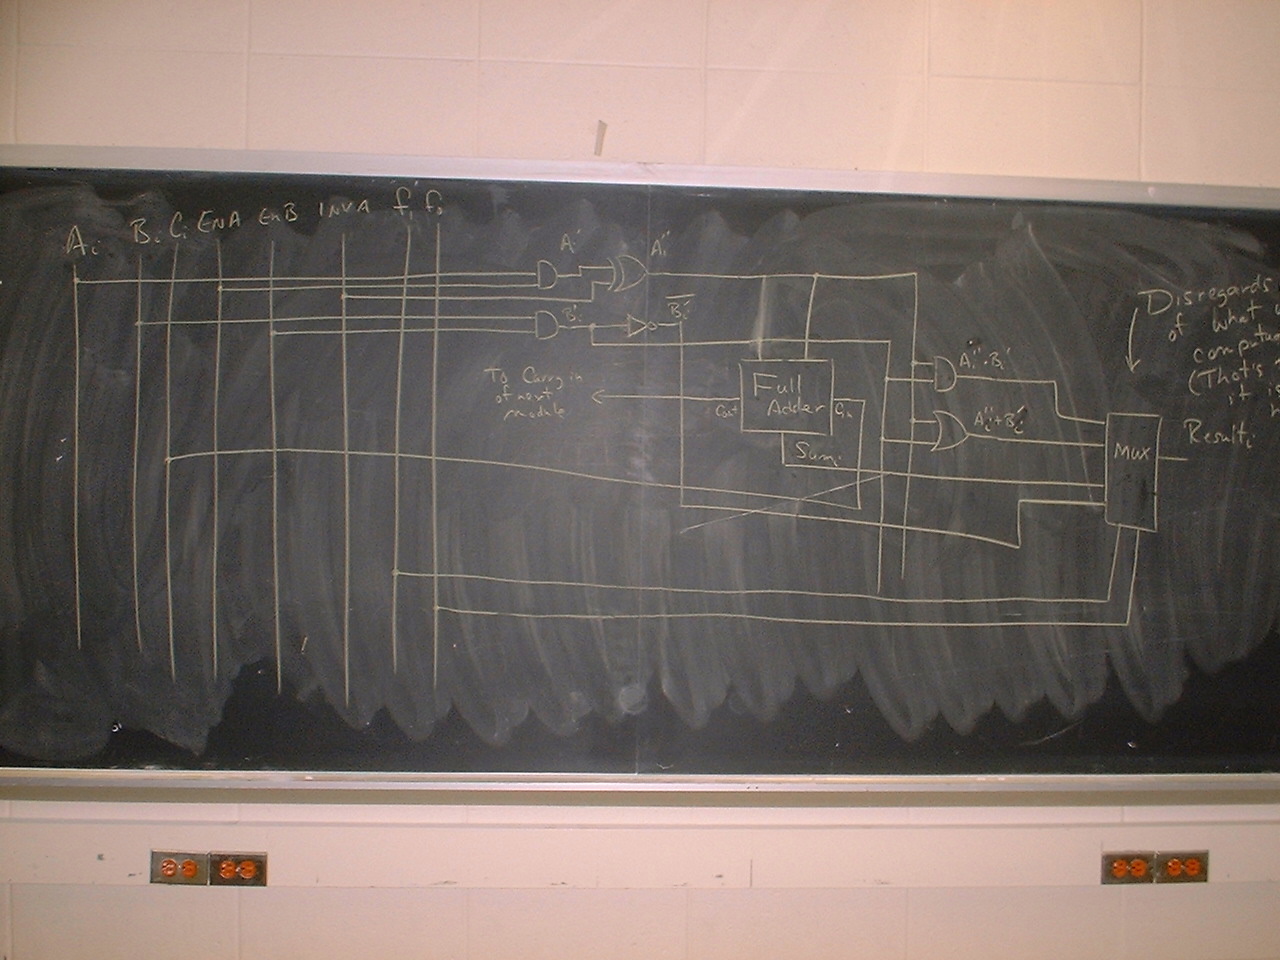 Ai Bi Ci ENA EnB INVA f1 f0
Ai' Ai''
Bi' Bi'
To Carry in
of next
module
Full
Adder
Cout Cin
Sumi
Ai''·Bi'
Ai''+Bi'
Mux
Resulti
Disregards
of what
(That's
it